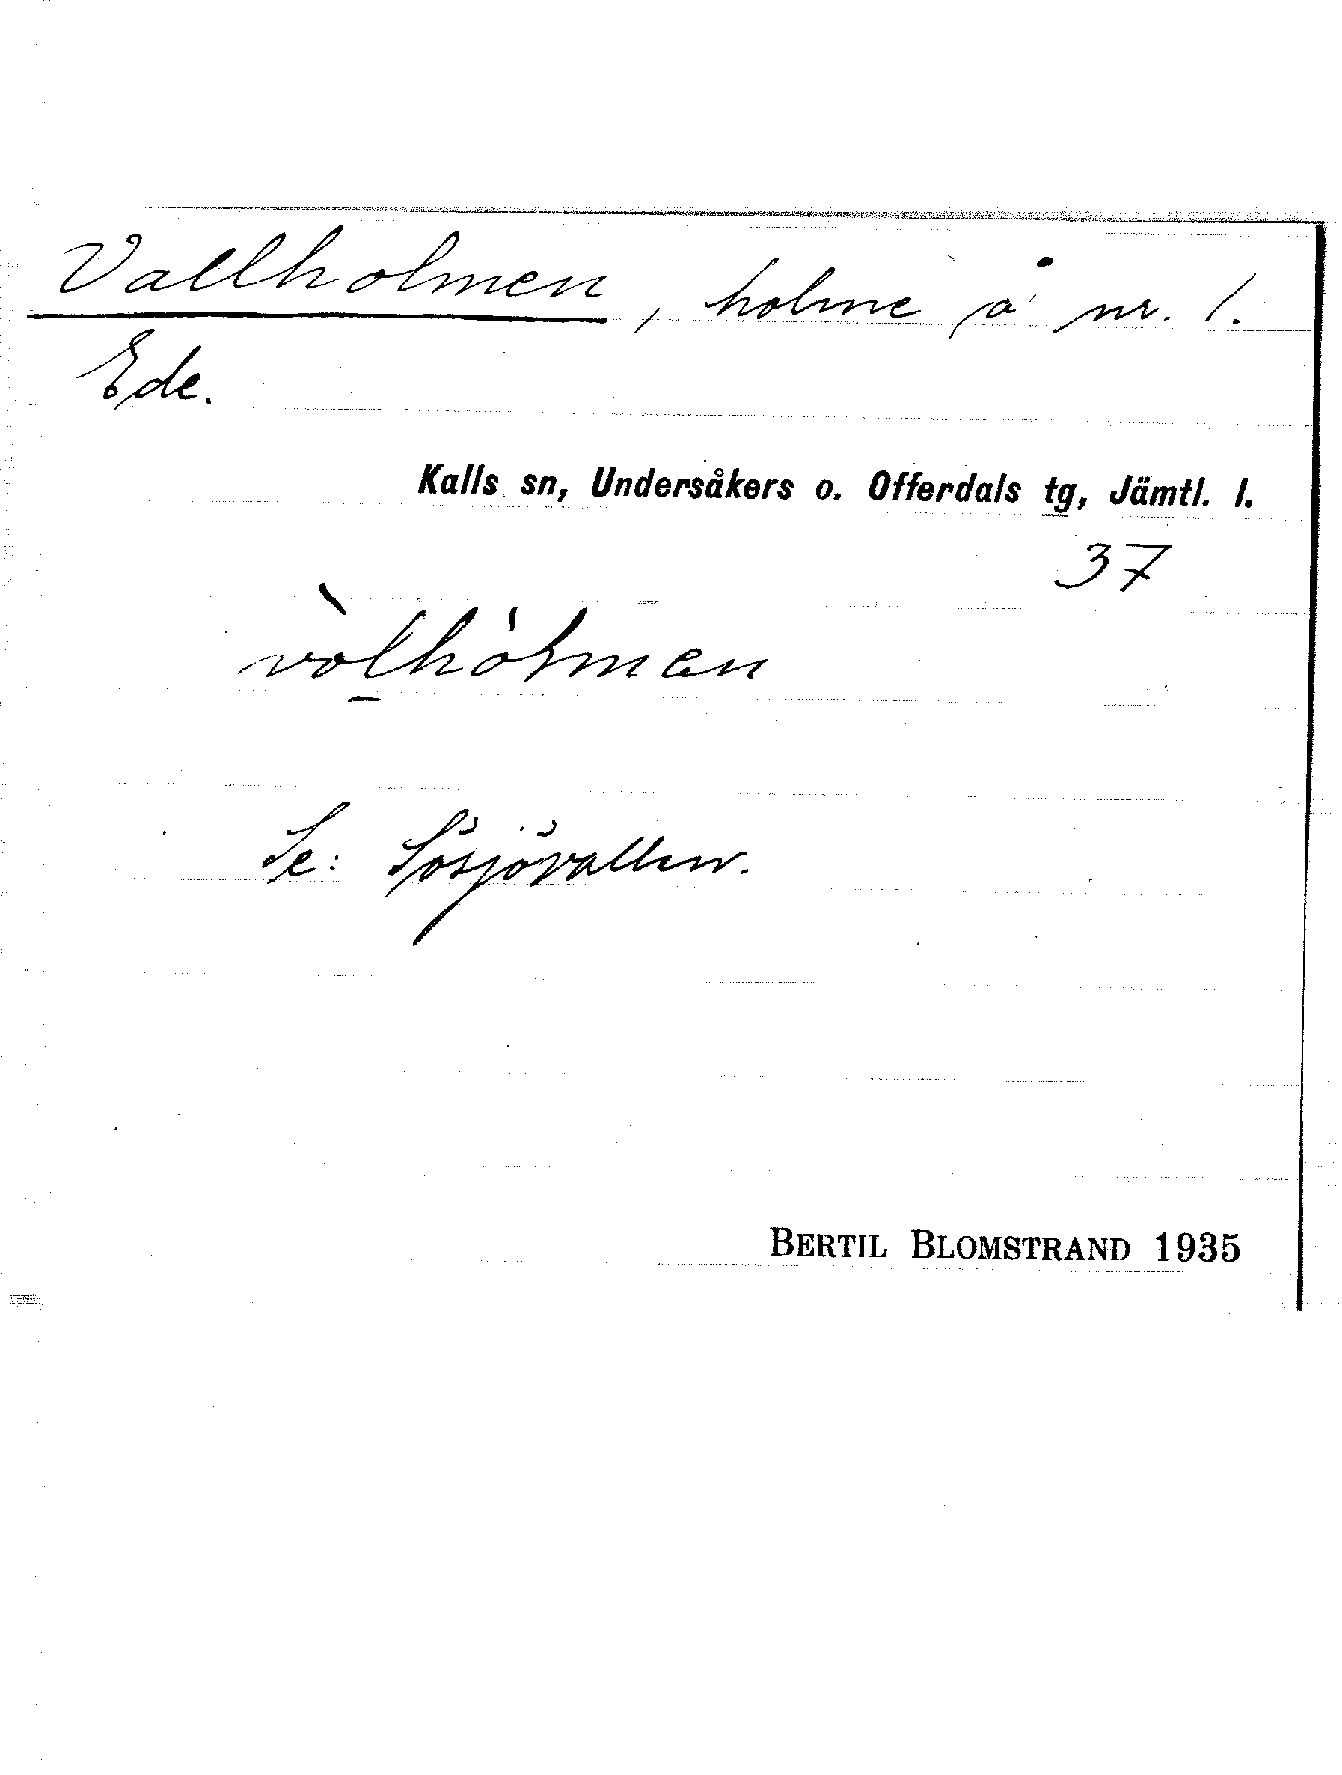 Vallholmen, holme på nr. 1.
Ede.
Kalls sn, Undersåkers o. Offerdals tg, Jämtl. l.
37
vòl̠hólmen
Se: Sösjövallen.
BERTIL BLOMSTRAND 1935